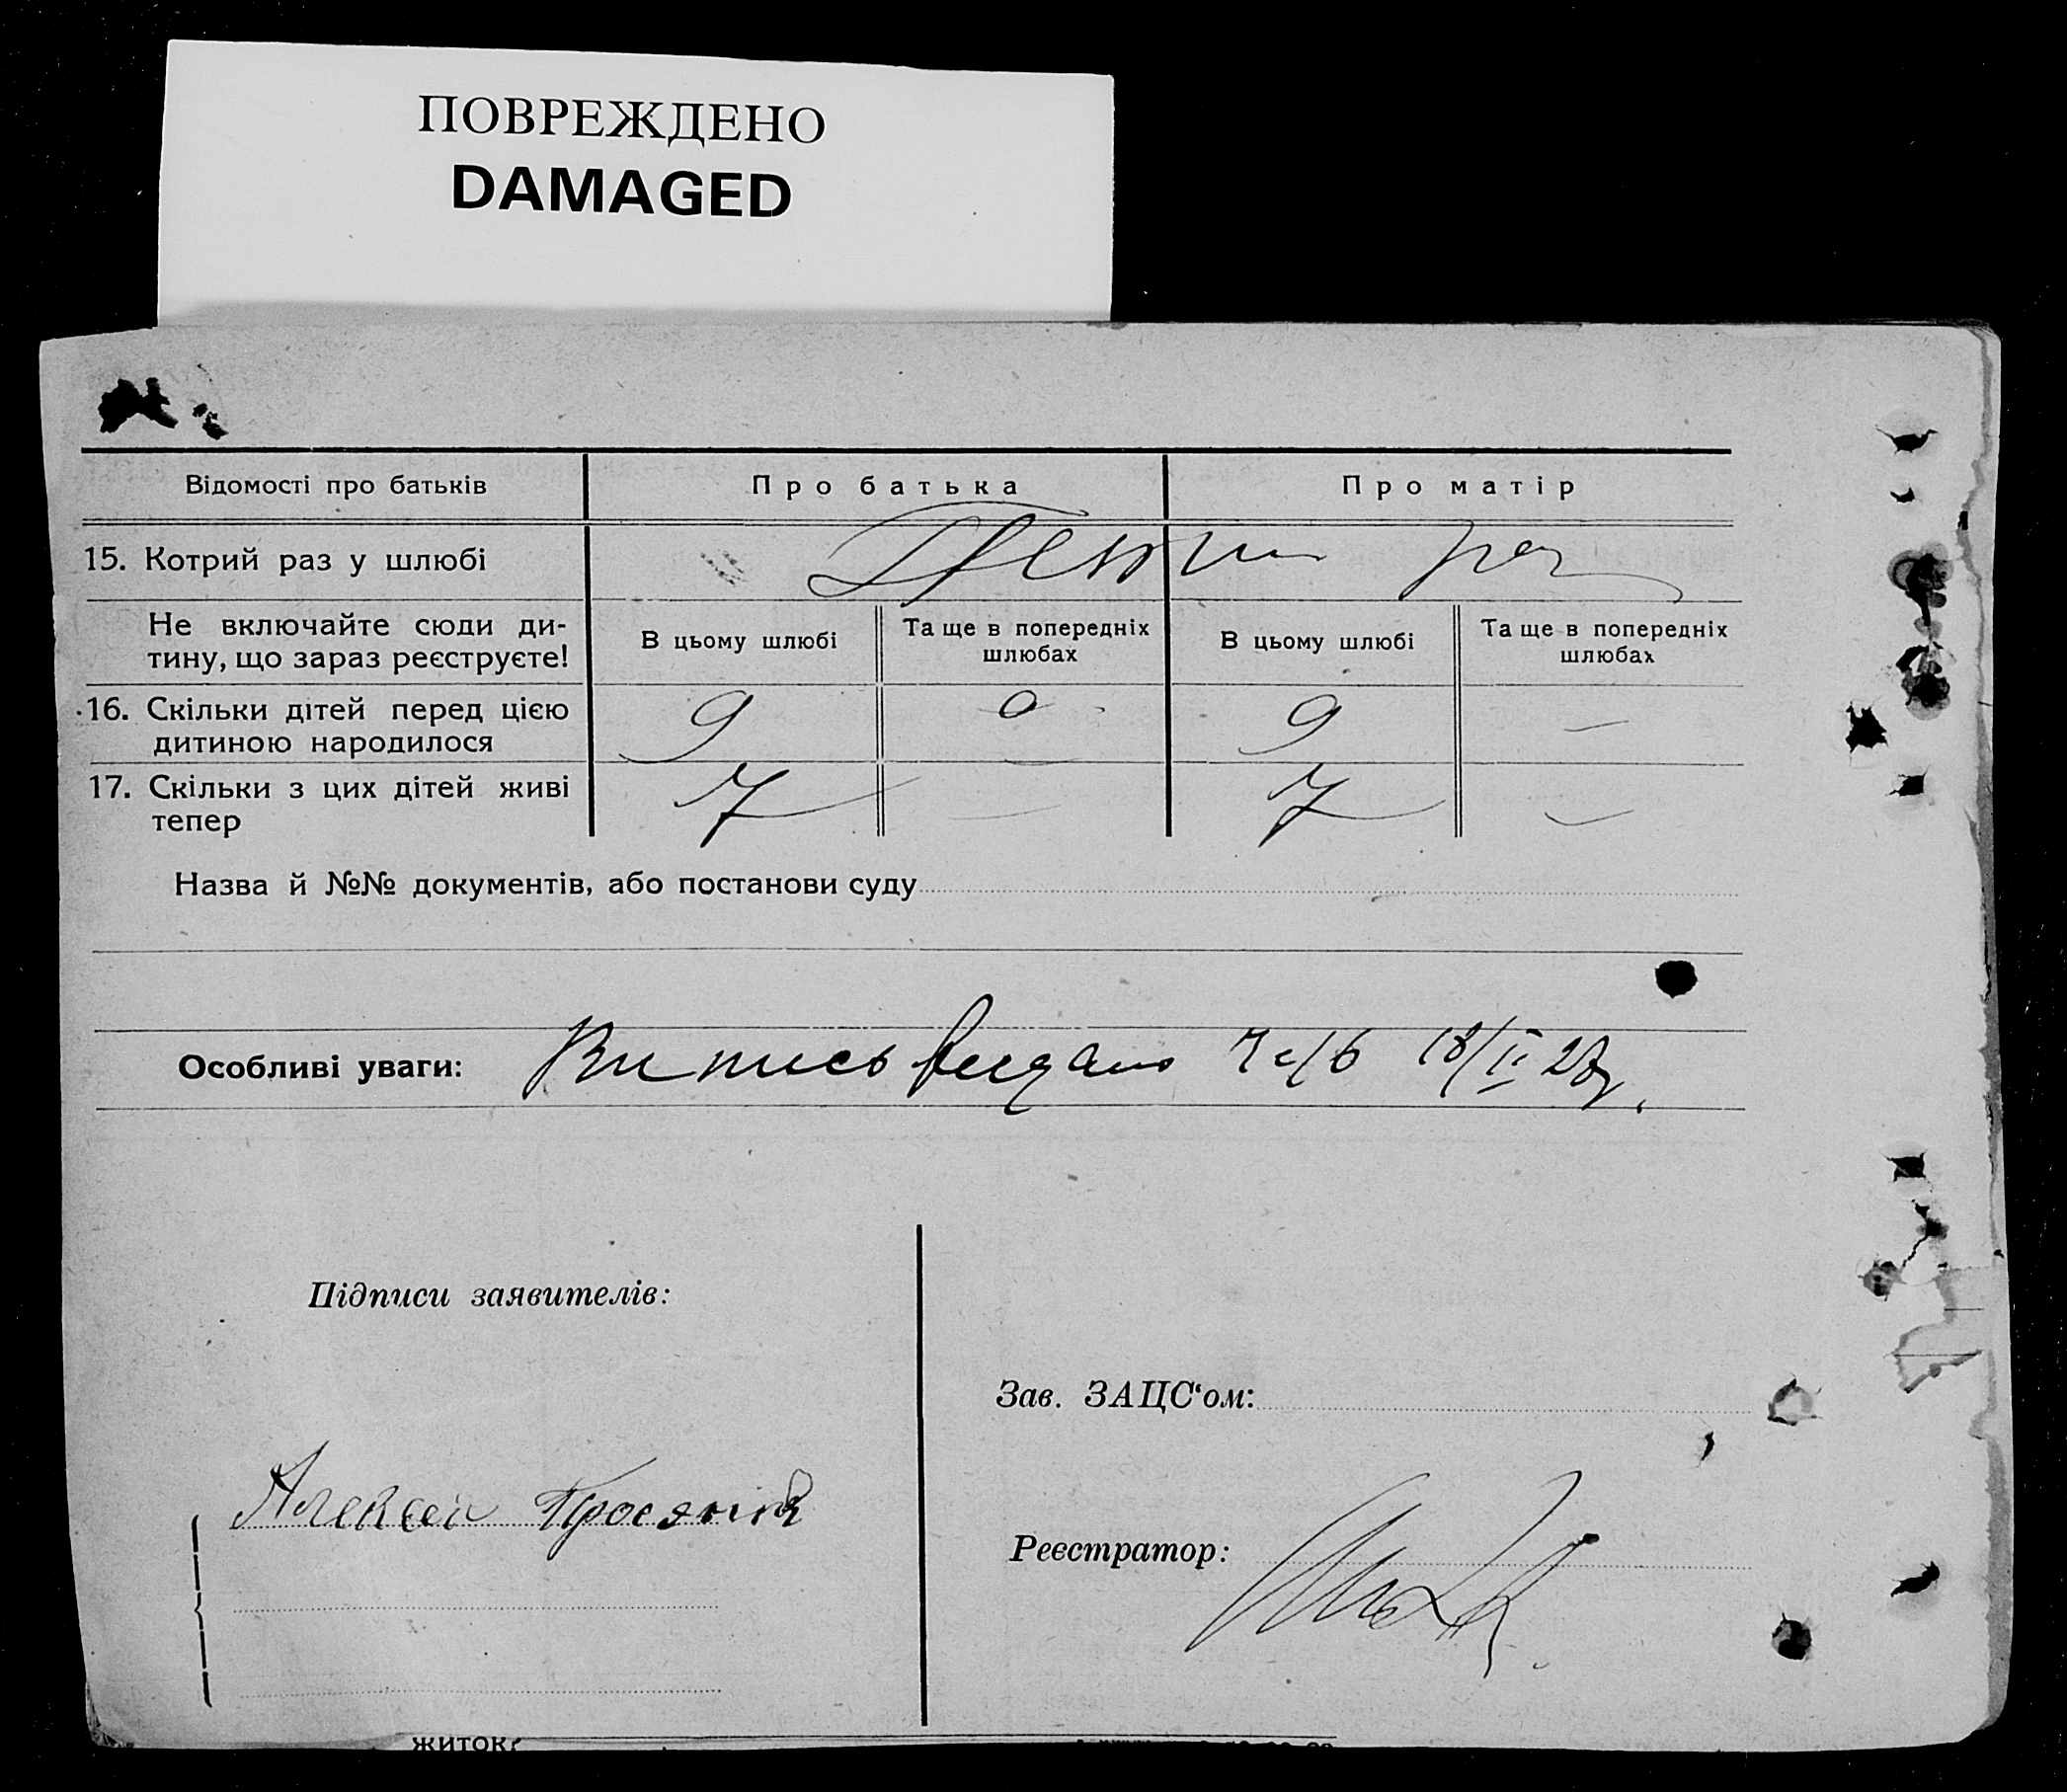 ПОВРЕЖДЕНО
DAMAGED
Відомості про батьків
Про батька
Про матір
15. Котрий раз у шлюбі
Первий раз
Не включайте сюди ди-
тину, що зараз реєструєте!
В цьому шлюбі
Та ще в попередніх
шлюбах
В цьому шлюбі
Та ще в попередніх
шлюбах
16. Скільки дітей перед цією
дитиною народилося
9
0
9
—
17. Скільки з цих дітей живі
тепер
7
—
7
—
Назва й №№ документів, або постанови суду
Особливі уваги: Випись видано 18/II 28
Підписи заявителів:
Зав. ЗАЦС‘ом:
Алексей
Реєстратор:
житок